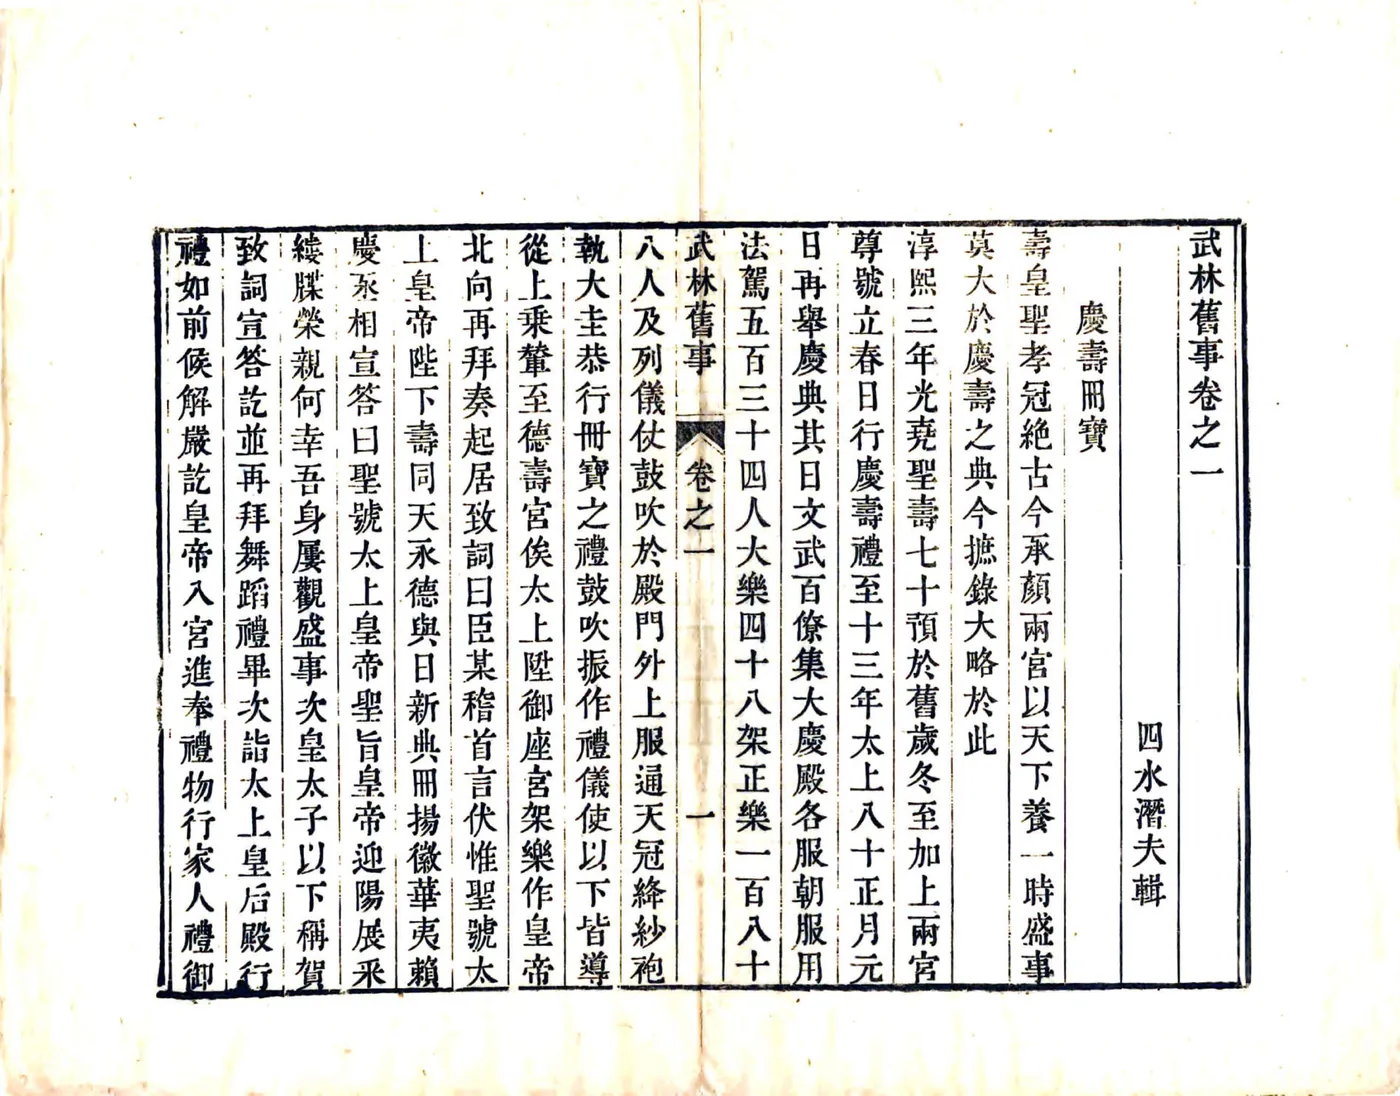 武林舊事卷之一
四水潛夫輯
慶壽冊寶
壽皇聖孝冠絶古今承顏兩宮以天下養一時盛事
莫大於慶壽之典今摭錄大略於此
淳熙三年光堯聖壽七十預於舊歲冬至加上兩宮
尊號立春日行慶壽禮至十三年太上八十正月元
日再舉慶典其日文武百僚集大慶殿各服朝服用
法駕五百三十四人大樂四十八架正樂一百八十
武林舊事 卷之一 一
八人及列儀仗鼓吹於殿門外上服通天冠絳紗袍
執大圭恭行冊寶之禮鼓吹振作禮儀使以下皆導
從上乘輦至德壽宮俟太上陞御座宮架樂作皇帝
北向再拜奏起居致詞曰臣某稽首言伏惟聖號太
上皇帝陛下壽同天永德與日新典冊揚徽華夷賴
慶丞相宣答曰聖號太上皇帝聖旨皇帝迎陽展采
縷牒榮親何幸吾身屢觀盛事次皇太子以下稱賀
致詞宣答訖並再拜舞蹈禮畢次詣太上皇后殿行
禮如前候解嚴訖皇帝入宮進奉禮物行家人禮御